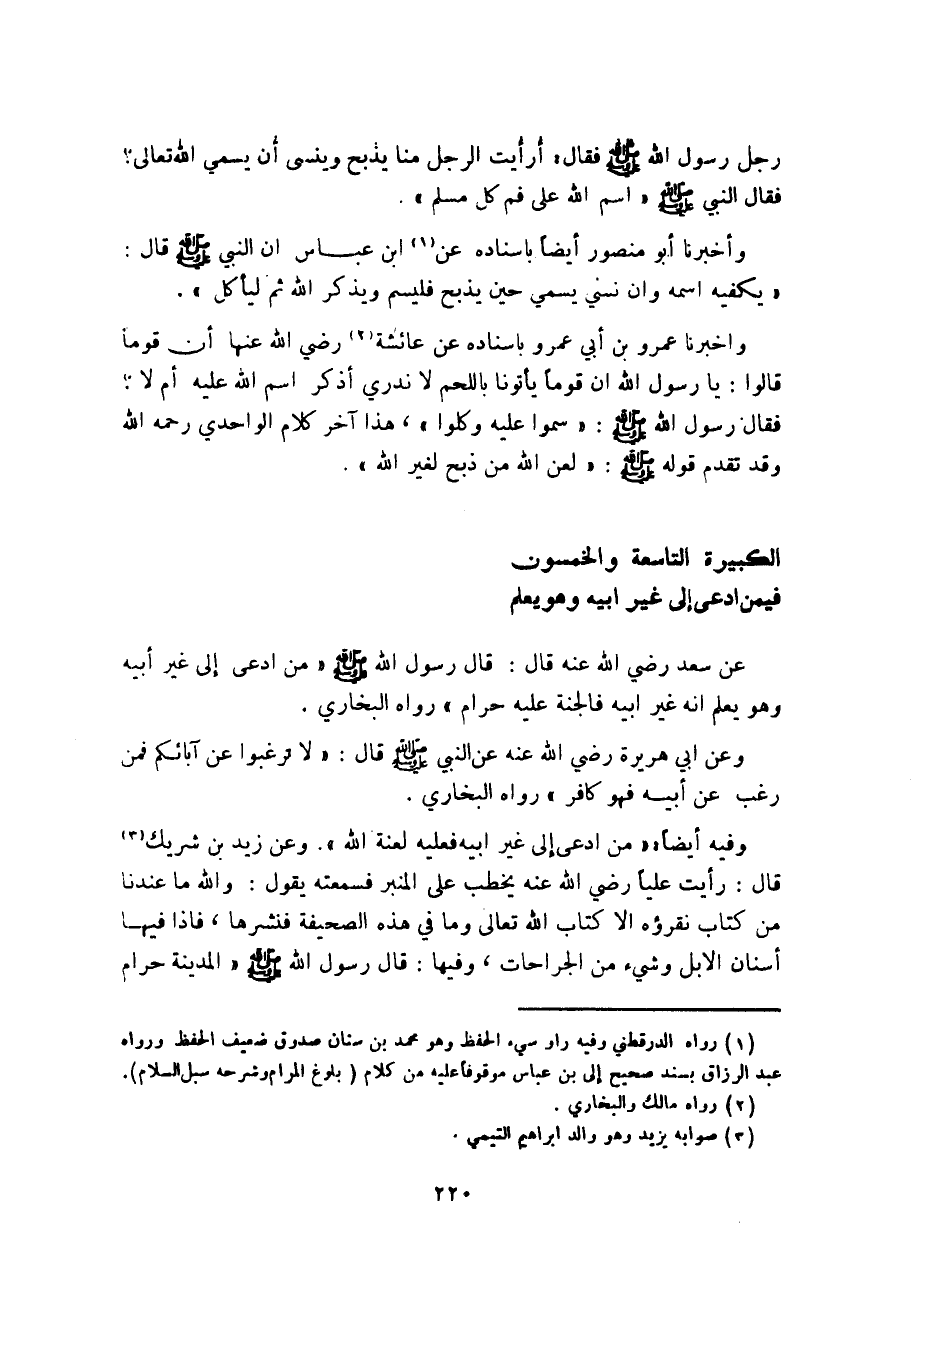 رجل رسول الله ﷺ فقال: أرأيت الرجل منا يذبح وينسى أن يسمي الله تعالى؟
فقال النبي ﷺ « اسم الله على فم كل مسلم » .
وأخبرنا أبو منصور أيضاً باسناده عن(١) ابن عبـــاس ان النبي ﷺ قال :
« يكفيه اسمه وان نسي يسمي حين يذبح فليسم ويذكر الله ثم ليأكل » .
واخبرنا عمرو بن أبي عمرو باسناده عن عائشة(٢) رضي الله عنها أن قوماً
قالوا : يا رسول الله ان قوماً يأتونا باللحم لا ندري أذكر اسم الله عليه أم لا ؟
فقال رسول الله ﷺ : « سموا عليه وكلوا » ، هذا آخر كلام الواحدي رحمه الله
وقد تقدم قوله ﷺ : « لعن الله من ذبح لغير الله » .
الكبيرة التاسعة والخمسون
فيمن ادعى إلى غير ابيه وهو يعلم
عن سعد رضي الله عنه قال : قال رسول الله ﷺ « من ادعى إلى غير أبيه
وهو يعلم انه غير ابيه فالجنة عليه حرام » رواه البخاري .
وعن ابي هريرة رضي الله عنه عن النبي ﷺ قال : « لا ترغبوا عن آبائكم فمن
رغب عن أبيــه فهو كافر » رواه البخاري .
وفيه أيضاً: « من ادعى إلى غير ابيه فعليه لعنة الله ». وعن زيد بن شريك(٣)
قال : رأيت علياً رضي الله عنه يخطب على المنبر فسمعته يقول : والله ما عندنا
من كتاب نقرؤه الا كتاب الله تعالى وما في هذه الصحيفة فنشرها ، فاذا فيهــا
أسنان الابل وشيء من الجراحات ، وفيها : قال رسول الله ﷺ « المدينة حرام
(١) رواه الدرقطني وفيه راو سيء الحفظ وهو محمد بن سنان صدوق ضعيف الحفظ ورواه
عبد الرزاق بسند صحيح إلى بن عباس موقوفاً عليه من كلام ( بلوغ المرام وشرحه سبل السلام).
(٢) رواه مالك والبخاري .
(٣) صوابه يزيد وهو والد ابراهيم التيمي .
٢٢٠